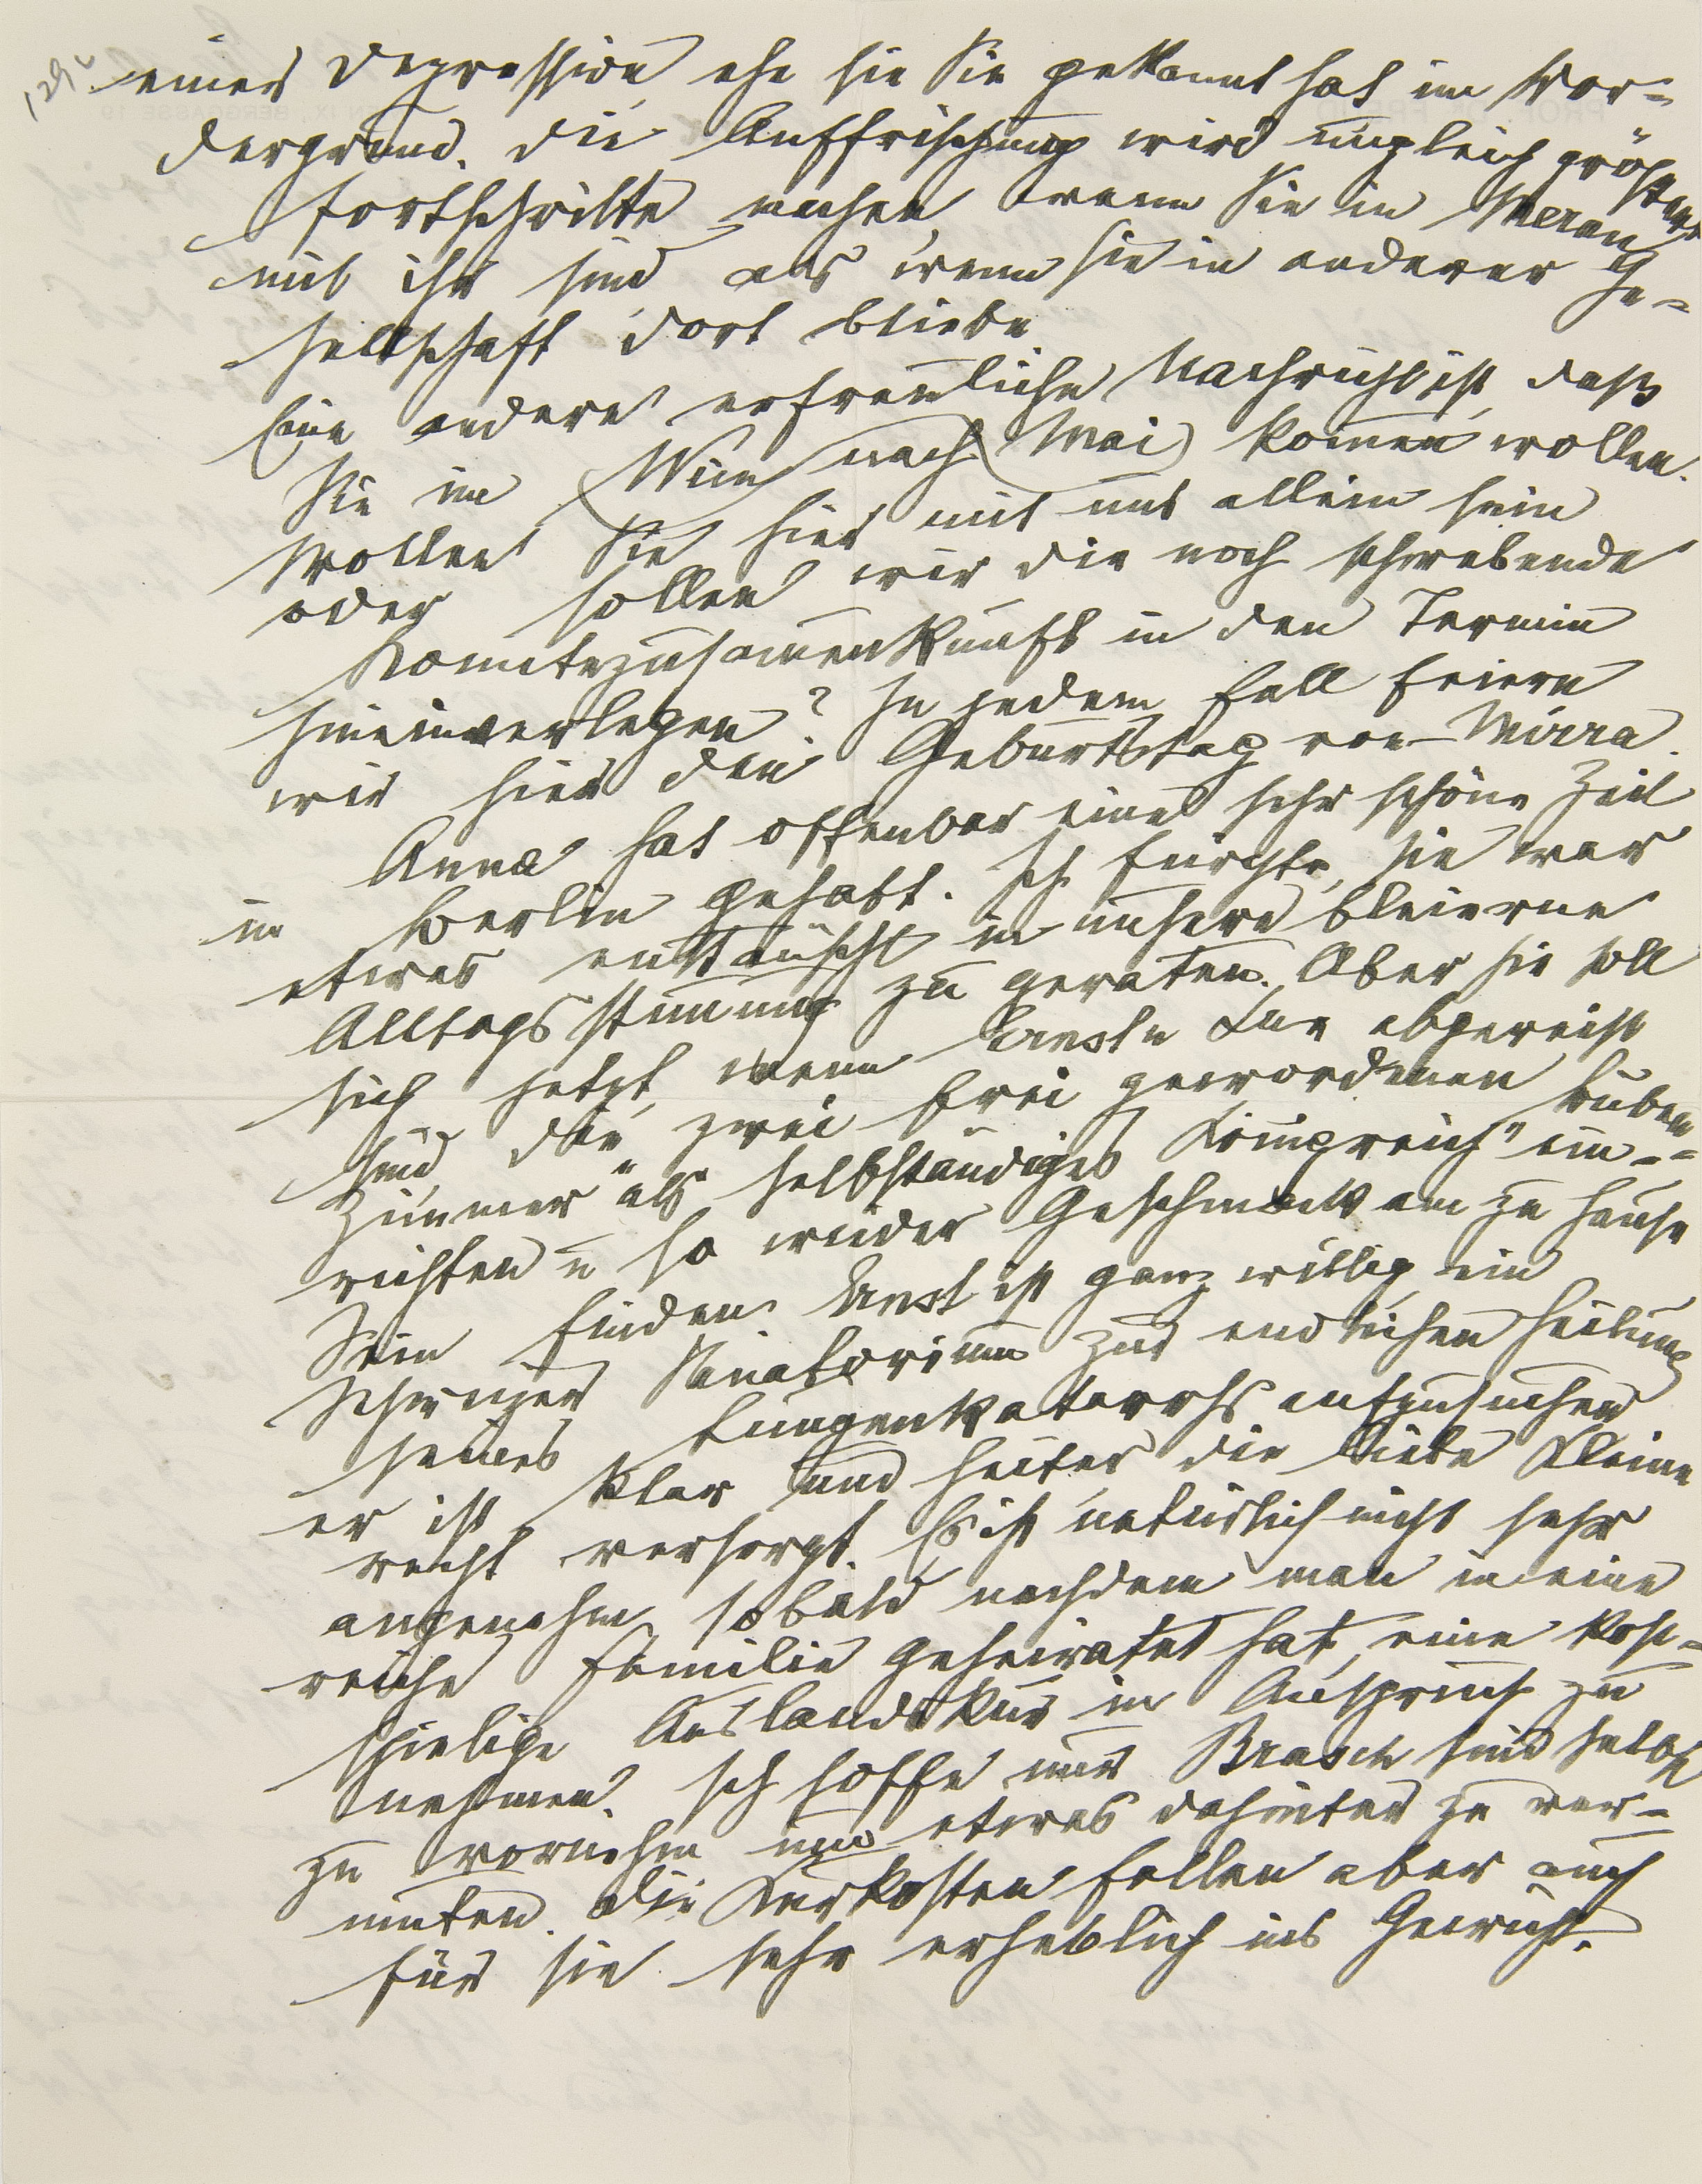 einer Depression ehe sie Sie gekannt hat im Vor-
dergrund. Die Auffrischung wird ungleich größere
Fortschritte machen, wenn Sie in Meran
mit ihr sind als wenn sie in anderer Ge-
sellschaft dort bliebe.
Eine andere erfreuliche Nachricht ist, daß
Sie im Mai nach Wien kommen wollen.
Wollen Sie hier mit uns allein sein
oder sollen wir die noch schwebende
Komitezusammenkunft in den Termin
hineinverlegen? In jedem Fall feiern
wir hier den Geburtstag von Mirra.
Anna hat offenbar eine sehr schöne Zeit
in Berlin gehabt. Ich fürchte, sie war
etwas enttäuscht in unsere bleierne
Alltagsstimmung zu geraten. Aber sie soll
sich jetzt, wenn Ernst u Lux abgereist
sind, die zwei frei gewordenen Buben-
zimmer "als selbständiges Königreich" ein-
richten u so wieder Geschmack am zu Hause
Sein finden. Ernst ist ganz willig, ein
Schweizer Sanatorium zur endlichen Heilung
seines Lungenkatarrhs aufzusuchen
er ist klar und heiter, die liebe Kleine
recht versorgt. Es ist natürlich nicht sehr
angenehm, sobald nachdem man in eine
reiche Familie geheiratet hat, eine kost-
spielige Auslandskur in Anspruch zu
nehmen. Ich hoffe nur Brasch sind selbst
zu vornehm um etwas dahinter zu ver-
muten. Die Kurkosten fallen aber auch
für sie sehr erheblich ins Gewicht.